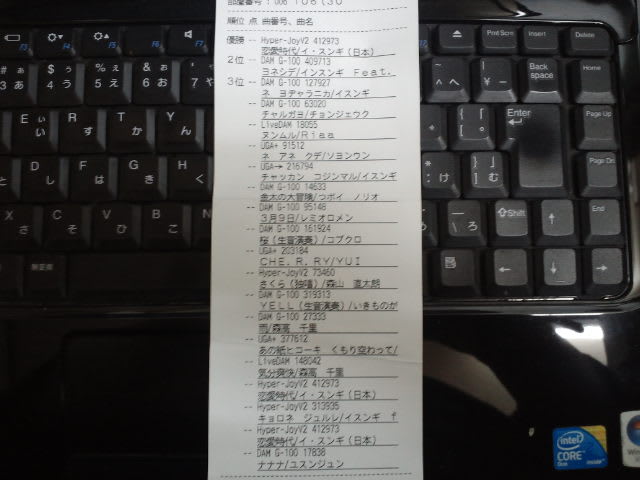 部屋番号: 006
順位 点 曲番号、曲名
優勝 -- Hyper-JoyV2 412973
恋愛時代/イ・スンギ(日本)
2位 -- DAM G-100 409713
ヨネシデ/インスンギ Feat.
3位 -- DAM G-100 127927
ネ ヨヂャラニカ/イスンギ
-- DAM G-100 63020
チャルガヨ/チョンジェウク
-- LiveDAM 18055
ヌンムル/Riaa
-- UGA+ 91512
ネ アネ クデ/ソヨンウン
-- UGA→ 216794
チャッカン コジンマル/イスンギ
-- DAM G-100 14633
金太の大冒険/つボイ ノリオ
-- DAM G-100 95146
3月9日/レミオロメン
-- DAM G-100 161924
桜(生音演奏)/コブクロ
-- UGA+ 203184
CHE.R.RY/YUI
-- Hyper-JoyV2 73460
さくら(独唱)/森山 直太朗
-- DAM G-100 319313
YELL(生音演奏)/いきものが
-- DAM G-100 27333
雨/森高 千里
-- UGA+ 377612
あの紙ヒコーキ くもり空わって/
-- LiveDAM 148042
気分爽快/森高 千里
-- Hyper-JoyV2 412973
恋愛時代/イ・スンギ(日本)
-- Hyper-JoyV2 313935
キョロネ ジュルレ/イスンギ f
-- Hyper-JoyV2 412973
恋愛時代/イ・スンギ(日本)
-- DAM G-100 17838
ナナナ/ユスンジュン
Prnt Scrn
Insert
Delete
Back space
Home
Enter
Page Up
Page Dn
Shift
End
無変換
intel
CORE
Duo
inside